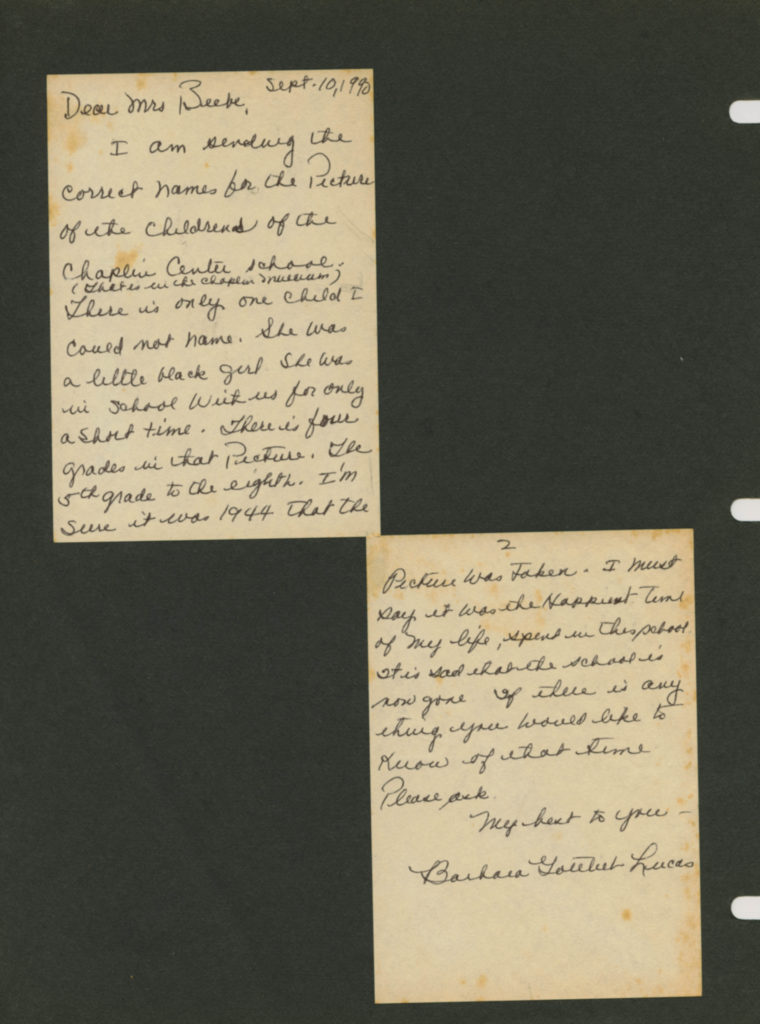 Sept. 10, 1990
Dear Mrs Beebe,
I am sending the
correct names for the Picture
of the Childrens of the
Chaplin Center school.
(That is in the Chaplin Museum)
There is only one child I
could not name. She was
a little black girl She was
in school With us for only
a short time. There is four
grades in that Picture. The
5th grade to the eighth. I'm
Sure it was 1944 that the
2
Picture was taken. I must
say it was the Happiest time
of My life, spend in this school.
It is sad that the school is
now gone If there is any
thing you would like to
Know of that time
Please ask
My best to you -
Barbara Gottlieb Lucas